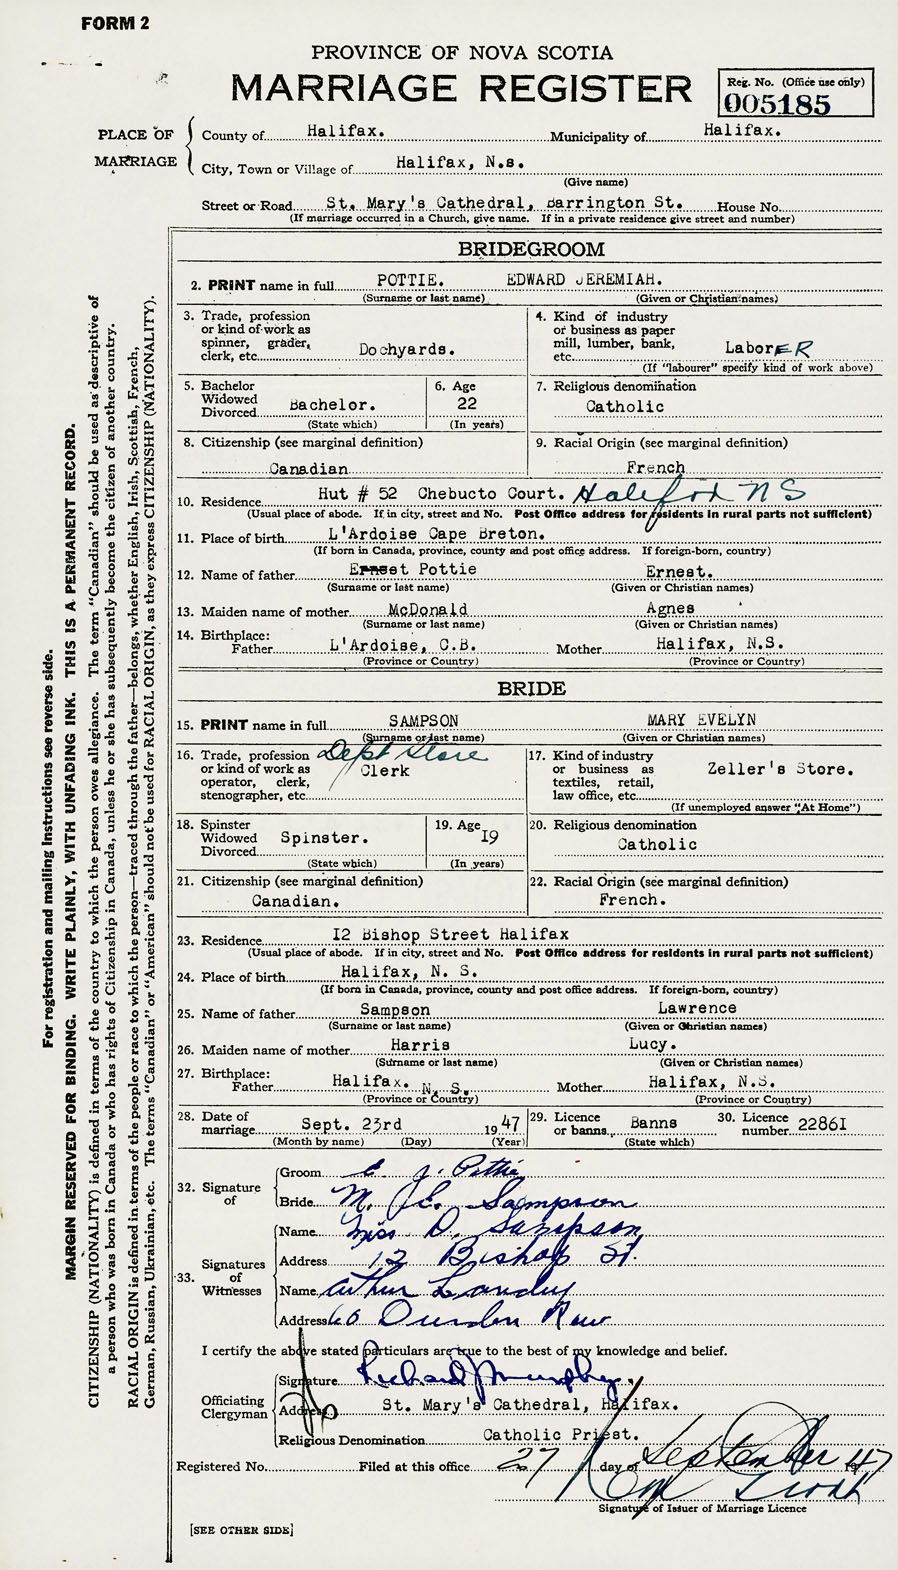 FORM 2
PROVINCE OF NOVA SCOTIA
MARRIAGE REGISTER
Reg. No. (Office use only)
005185
PLACE OF MARRIAGE
County of Halifax. Municipality of Halifax.
City, Town or Village of Halifax, N.s.
(Give name)
Street or Road St. Mary's Cathedral, Barrington St. House No.
(If marriage occurred in a Church, give name. If in a private residence give street and number)
BRIDEGROOM
2. PRINT name in full POTTIE. EDWARD JEREMIAH.
(Surname or last name) (Given or Christian names)
3. Trade, profession
or kind of work as
spinner, grader,
clerk, etc. Dochyards.
4. Kind of industry
or business as paper
mill, lumber, bank,
etc. LaborER
(If "labourer" specify kind of work above)
5. Bachelor
Widowed
Divorced Bachelor.
(State which)
6. Age
22
(In years)
7. Religious denomination
Catholic
8. Citizenship (see marginal definition)
Canadian
9. Racial Origin (see marginal definition)
French
10. Residence Hut # 52 Chebucto Court. Halifax N S
(Usual place of abode. If in city, street and No. Post Office address for residents in rural parts not sufficient)
11. Place of birth L'Ardoise Cape Breton.
(If born in Canada, province, county and post office address. If foreign-born, country)
12. Name of father Ernest Pottie Ernest.
(Surname or last name) (Given or Christian names)
13. Maiden name of mother McDonald Agnes
(Surname or last name) (Given or Christian names)
14. Birthplace:
Father L'Ardoise, C.B. Mother Halifax, N.S.
(Province or Country) (Province or Country)
BRIDE
15. PRINT name in full SAMPSON MARY EVELYN
(Surname or last name) (Given or Christian names)
16. Trade, profession Dept Store
or kind of work as Clerk
operator, clerk,
stenographer, etc.
17. Kind of industry
or business as Zeller's Store.
textiles, retail,
law office, etc.
(If unemployed answer "At Home")
18. Spinster
Widowed Spinster.
Divorced
(State which)
19. Age I9
(In years)
20. Religious denomination
Catholic
21. Citizenship (see marginal definition)
Canadian.
22. Racial Origin (see marginal definition)
French.
23. Residence I2 Bishop Street Halifax
(Usual place of abode. If in city, street and No. Post Office address for residents in rural parts not sufficient)
24. Place of birth Halifax, N. S.
(If born in Canada, province, county and post office address. If foreign-born, country)
25. Name of father Sampson Lawrence
(Surname or last name) (Given or Christian names)
26. Maiden name of mother Harris Lucy.
(Surname or last name) (Given or Christian names)
27. Birthplace:
Father Halifax. N. S. Mother Halifax, N.S.
(Province or Country) (Province or Country)
28. Date of
marriage Sept. 23rd 1947
(Month by name) (Day) (Year)
29. Licence
or banns Banns
(State which)
30. Licence
number 2286I
32. Signature of
Groom E J. Pottie
Bride M. E. Sampson
33. Signatures of Witnesses
Name Miss D. Sampson
Address 12 Bishop St.
Name Arthur Landry
Address 60 Row
I certify the above stated particulars are true to the best of my knowledge and belief.
Officiating Clergyman
Signature Richard J Murphy
Address St. Mary's Cathedral, Halifax.
Religious Denomination Catholic Priest.
Registered No. Filed at this office 27 day of September 1947
Signature of Issuer of Marriage Licence
[SEE OTHER SIDE]
For registration and mailing instructions see reverse side.
MARGIN RESERVED FOR BINDING. WRITE PLAINLY, WITH UNFADING INK. THIS IS A PERMANENT RECORD.
CITIZENSHIP (NATIONALITY) is defined in terms of the country to which the person owes allegiance. The term "Canadian" should be used as descriptive of
a person who was born in Canada or who has rights of Citizenship in Canada, unless he or she has subsequently become the citizen of another country.
RACIAL ORIGIN is defined in terms of the people or race to which the person—traced through the father—belongs, whether English, Irish, Scottish, French,
German, Russian, Ukrainian, etc. The terms "Canadian" or "American" should not be used for RACIAL ORIGIN, as they express CITIZENSHIP (NATIONALITY).